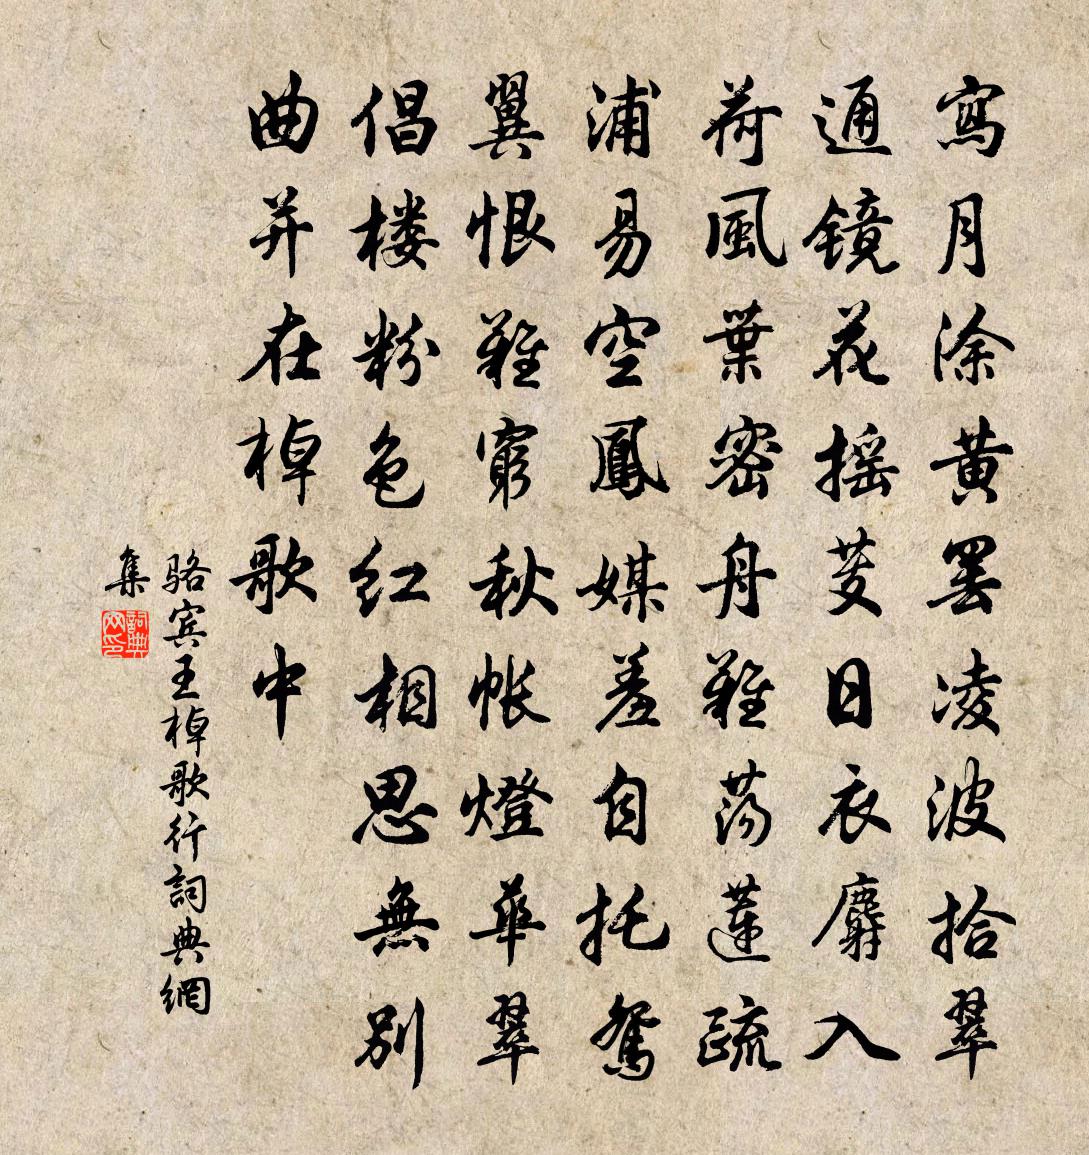 寫月涂黄罢凌波拾翠
通镜花摇芰日衣麝入
荷風葉密舟難荡莲疏
浦易空鳳媒羞自托鴛
翼恨難窮秋帐燈華翠
倡楼粉色红相思無别
曲并在棹歌中
骆宾王棹歌行詞典網
集
詞典
网印